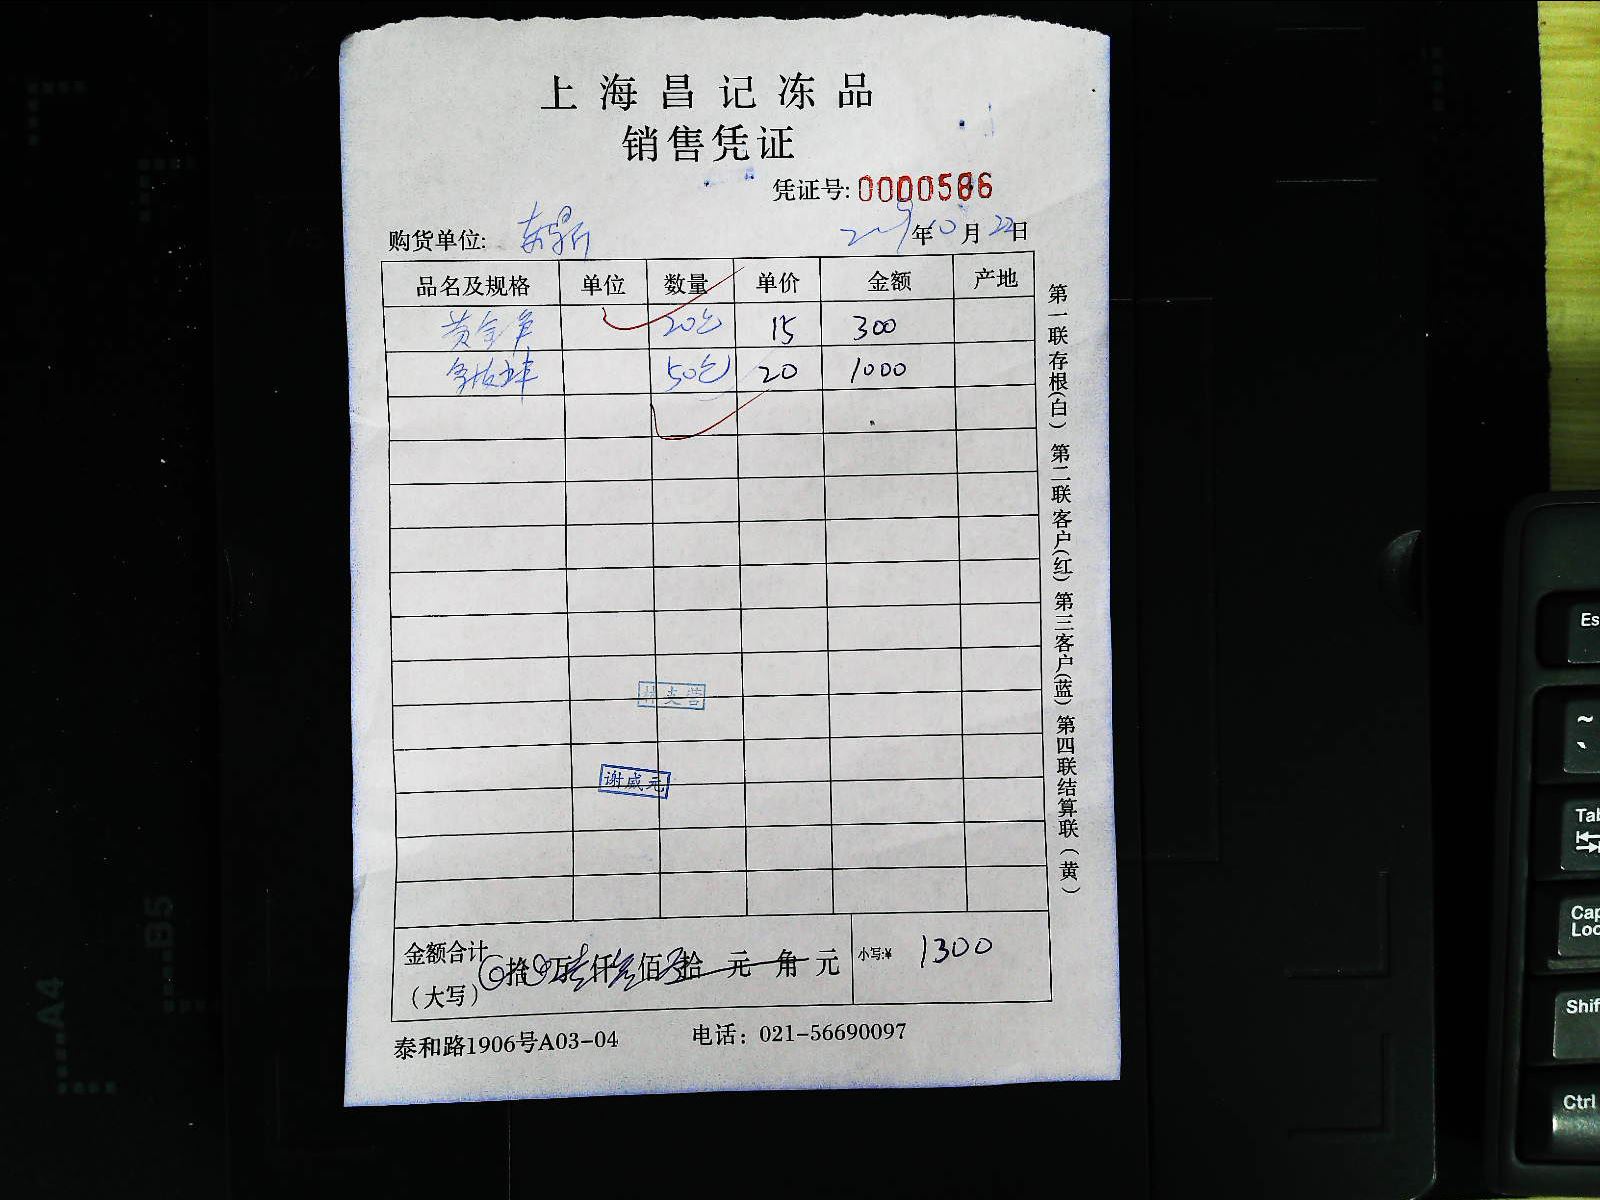 上海昌记冻品
销售凭证
凭证号: 0000586
购货单位:
年10月22日
品名及规格 单位 数量 单价 金额 产地
20包 15 300
50包 20 1000
谢咸元
金额合计(大写) 拾 万 仟 佰 拾 元 角 元 小写:¥ 1300
泰和路1906号A03-04 电话: 021-56690097
第一联存根(白) 第二联客户(红) 第三客户(蓝) 第四联结算联(黄)
A4
B5
Es
~
`
Tab
Cap
Loc
Shif
Ctrl